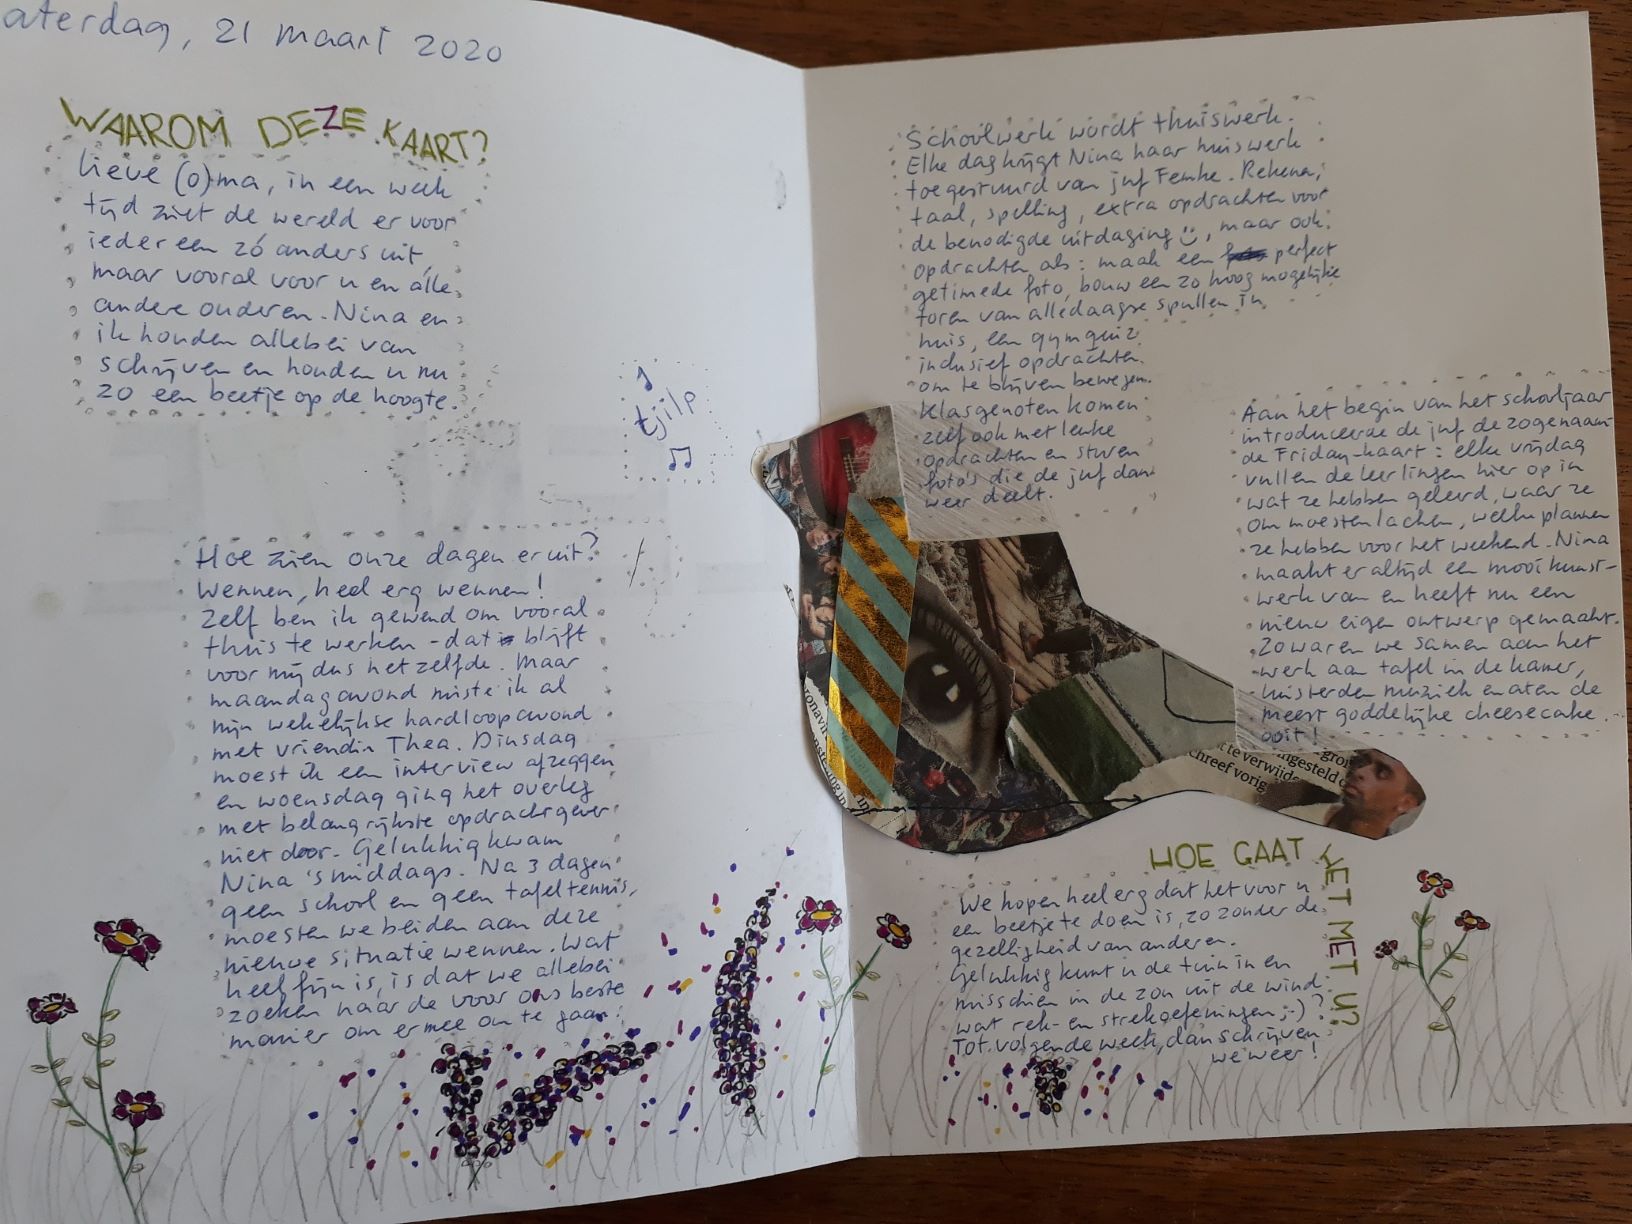 aterdag, 21 maart 2020
WAAROM DEZE KAART?
Lieve (o)ma, in een week
tijd ziet de wereld er voor
iedereen zó anders uit,
maar vooral voor u en álle
andere ouderen. Nina en
ik houden allebei van
schrijven en houden u nu
zo een beetje op de hoogte.
tjilp
Hoe zien onze dagen eruit?
Wennen, heel erg wennen!
Zelf ben ik gewend om vooral
thuis te werken - dat blijft
voor mij dus hetzelfde. Maar
maandagavond miste ik al
mijn wekelijkse hardloopavond
met vriendin Thea. Dinsdag
moest ik een interview afzeggen
en woensdag ging het overleg
met belangrijkste opdrachtgever
niet door. Gelukkig kwam
Nina 's middags. Na 3 dagen
geen school en geen tafeltennis,
moesten we beiden aan deze
nieuwe situatie wennen. Wat
heel fijn is, is dat we allebei
zoeken naar de voor ons beste
manier om ermee om te gaan.
Schoolwerk wordt thuiswerk.
Elke dag krijgt Nina haar huiswerk
toegestuurd van juf Femke. Rekenen,
taal, spelling, extra opdrachten voor
de benodigde uitdaging, maar ook
opdrachten als: maak een perfect
getimede foto, bouw een zo hoog mogelijke
toren van alledaagse spullen in
huis, een gymquiz
inclusief opdrachten
om te blijven bewegen.
Klasgenoten komen
zelf ook met leuke
opdrachten en sturen
foto's die de juf dan
weer deelt.
Aan het begin van het schooljaar
introduceerde de juf de zogenaam-
de Friday-kaart: elke vrijdag
vullen de leerlingen hier op in
wat ze hebben geleerd, waar ze
om moesten lachen, welke plannen
ze hebben voor het weekend. Nina
maakt er altijd een mooi kunst-
werk van en heeft nu een
nieuw eigen ontwerp gemaakt.
Zo waren we samen aan het
werk aan tafel in de kamer,
luisterden muziek en aten de
meest goddelijke cheesecake
ooit!
ronavir
te verwijde
ngesteld
chreef vorig
HOE GAAT HET MET U?
We hopen heel erg dat het voor u
een beetje te doen is, zo zonder de
gezelligheid van anderen.
Gelukkig kunt u de tuin in en
misschien in de zon uit de wind
wat rek- en strekoefeningen ;-)?
Tot volgende week, dan schrijven
we weer!